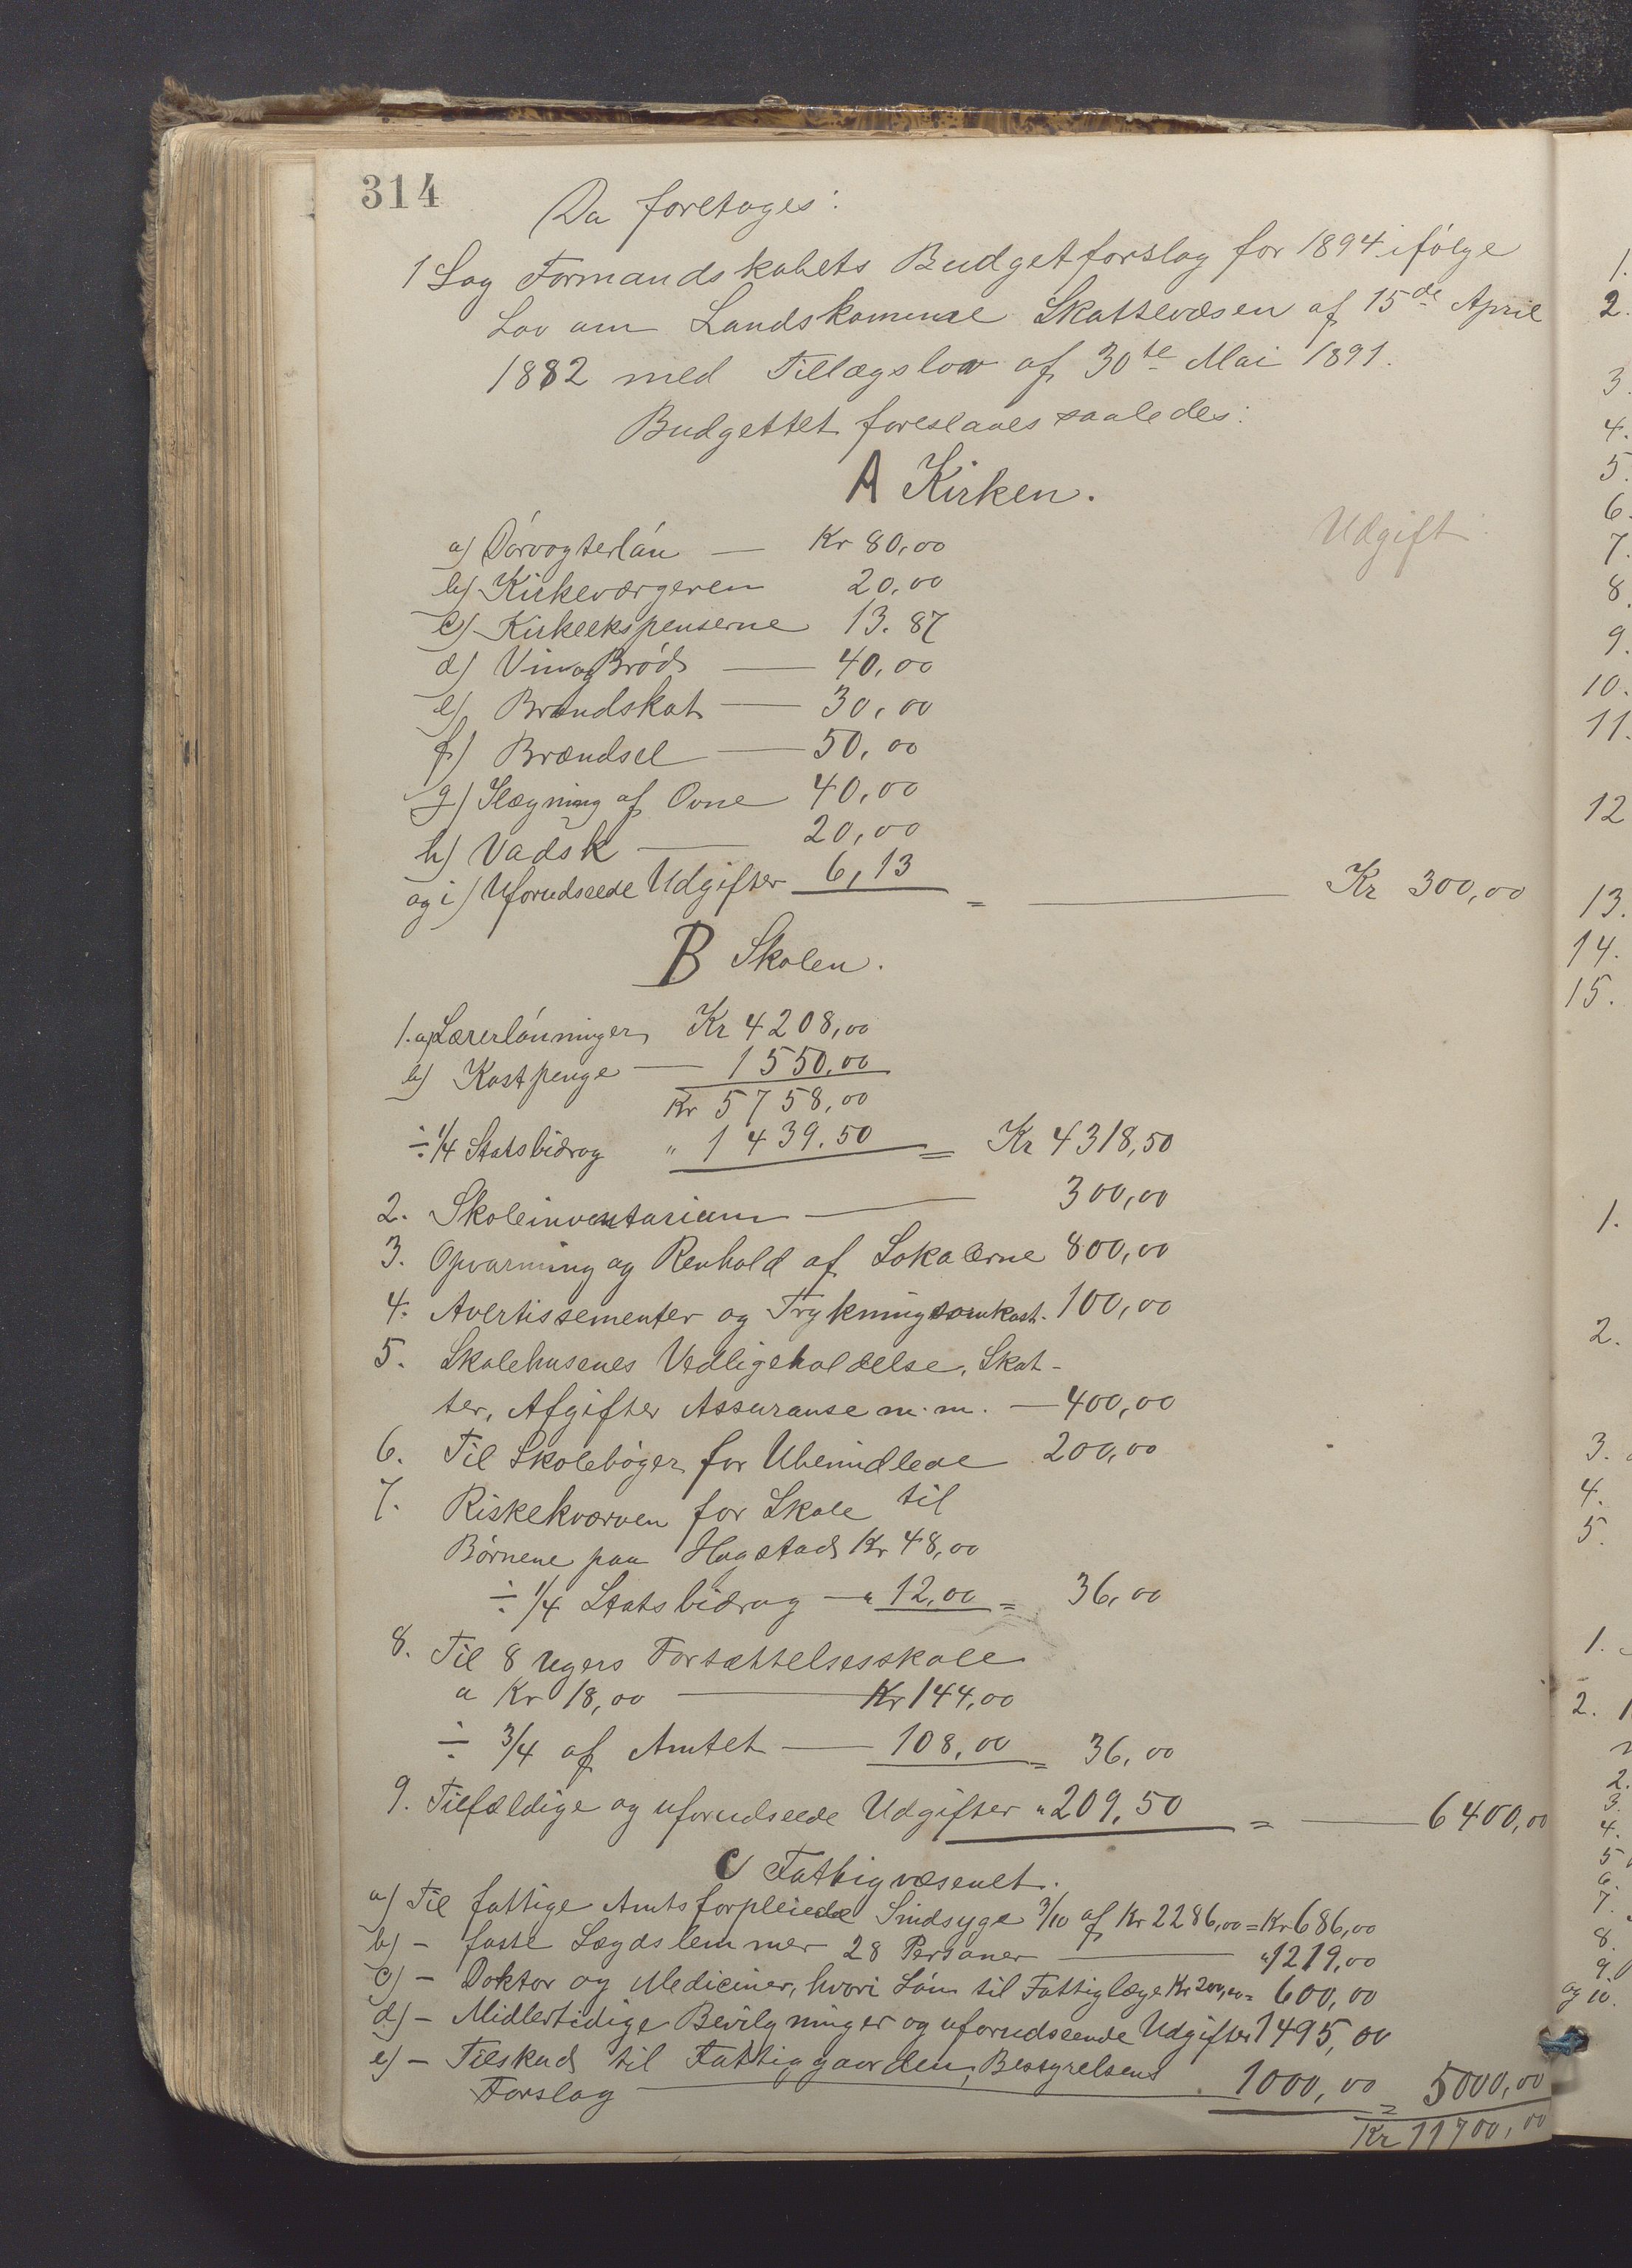 314
Da foretoges:
1 Sag Formandskabets Budgetforslag for 1894 ifølge
Lov om Landskommune Skattevæsen af 15de April
1882 med Tillægslov af 30te Mai 1891.
Budgettet foreslaaes saaledes:
A Kirken.
Udgift:
a) Dørvogterløn — Kr 80,00
b) Kirkeværgeren 20,00
c) Kirkeekspenserne 13.87
d) Vin og Brød — 40,00
e) Brandskat — 30,00
f) Brændsel — 50,00
g) Ilægning af Ovne 40,00
h) Vadsk — 20,00
og i) Uforudseede Udgifter 6,13 = — Kr 300,00
B Skolen.
1. a) Lærerlønninger Kr 4208,00
b) Kostpenge — 1550,00
Kr 5758,00
÷ 1/4 Statsbidrag " 1439.50 = Kr 4318,50
2. Skoleinventarium — 300,00
3. Opvarming og Renhold af Lokalerne 800,00
4. Avertissementer og Trykningsomkost. 100,00
5. Skolehusenes Vedligeholdelse, Skat-
ter, Afgifter Assuranse m.m. — 400,00
6. Til Skolebøger for Ubemidlede 200,00
7. Riskekværven for Skole til
Børnene paa Hogstad Kr 48,00
÷ 1/4 Statsbidrag — " 12,00 = 36,00
8. Til 8 Ugers Fortsættelsesskole
a Kr 18,00 — Kr 144,00
÷ 3/4 af Amtet — 108,00 = 36,00
9. Tilfældige og uforudseede Udgifter " 209,50 = — 6400,00
C Fattigvæsenet.
a) Til fattige Amtsforpleiede Sindsyge 3/10 af Kr 2286,00 = Kr 686,00
b) - faste Lægdslemmer 28 Personer — " 1219,00
c) - Doktor og Mediciner, hvori Løn til Fattiglæge Kr 200,00 = 600,00
d) - Midlertidige Bevilgninger og uforudseende Udgifter 1495,00
e) - Tilskud til Fattiggaarden, Bestyrelsens
Forslag — 1000,00 = 5000,00
Kr 11700,00
1.
2.
3.
4.
5.
6.
7.
8.
9.
10.
11.
12
13.
14.
15.
1.
2.
3.
4.
5.
1.
2.
2.
3.
4.
5
6.
7.
8.
9.
og 10.